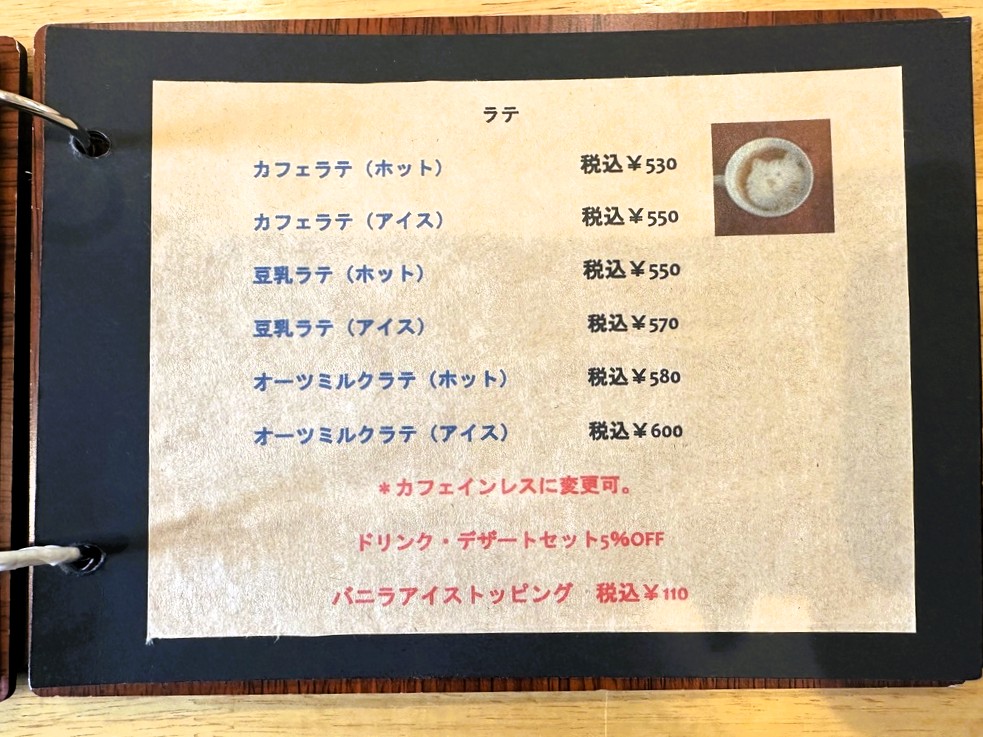 ラテ
カフェラテ（ホット） 税込￥530
カフェラテ（アイス） 税込￥550
豆乳ラテ（ホット） 税込￥550
豆乳ラテ（アイス） 税込￥570
オーツミルクラテ（ホット） 税込￥580
オーツミルクラテ（アイス） 税込￥600
＊カフェインレスに変更可。
ドリンク・デザートセット5%OFF
バニラアイストッピング　税込￥110